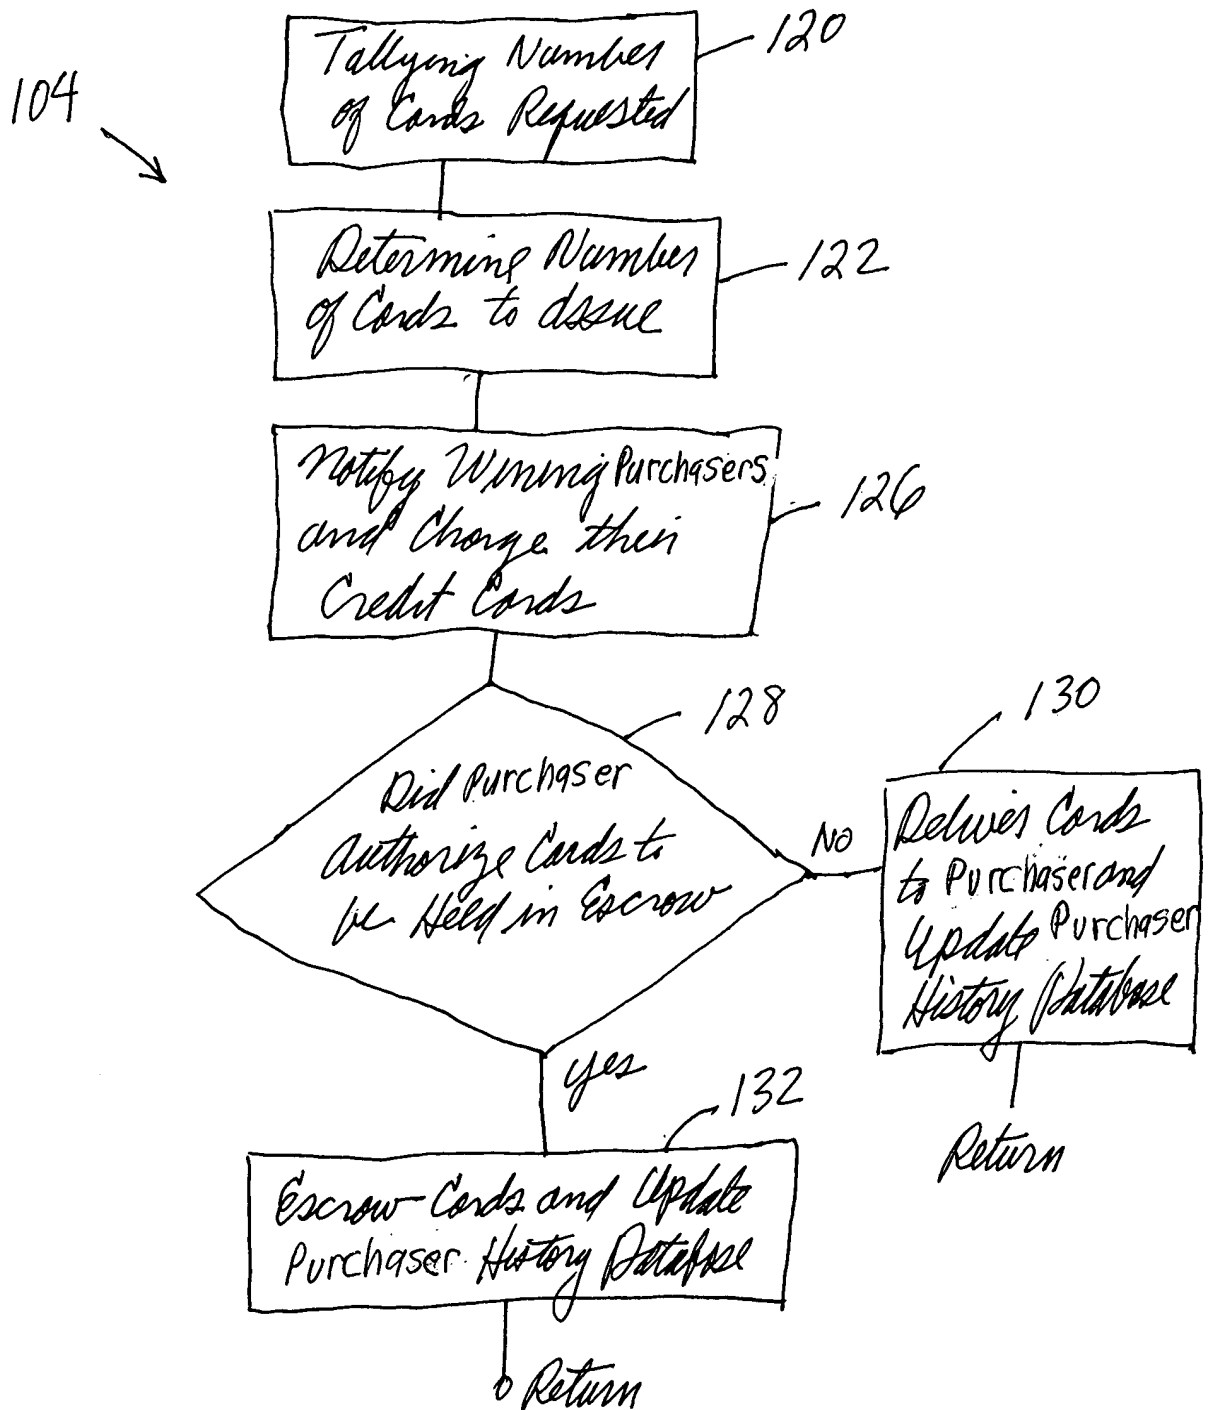 120
Tallying Number
of Cards Requested
104
122
Determine Number
of Cards to Issue
126
Notify Wining Purchasers
and Charge their
Credit Cards
128
Did Purchaser
Authorize Cards to
be Held in Escrow
No
130
Deliver Cards
to Purchaser and
Update Purchaser
History Database
Return
yes
132
Escrow Cards and Update
Purchaser History Database
Return